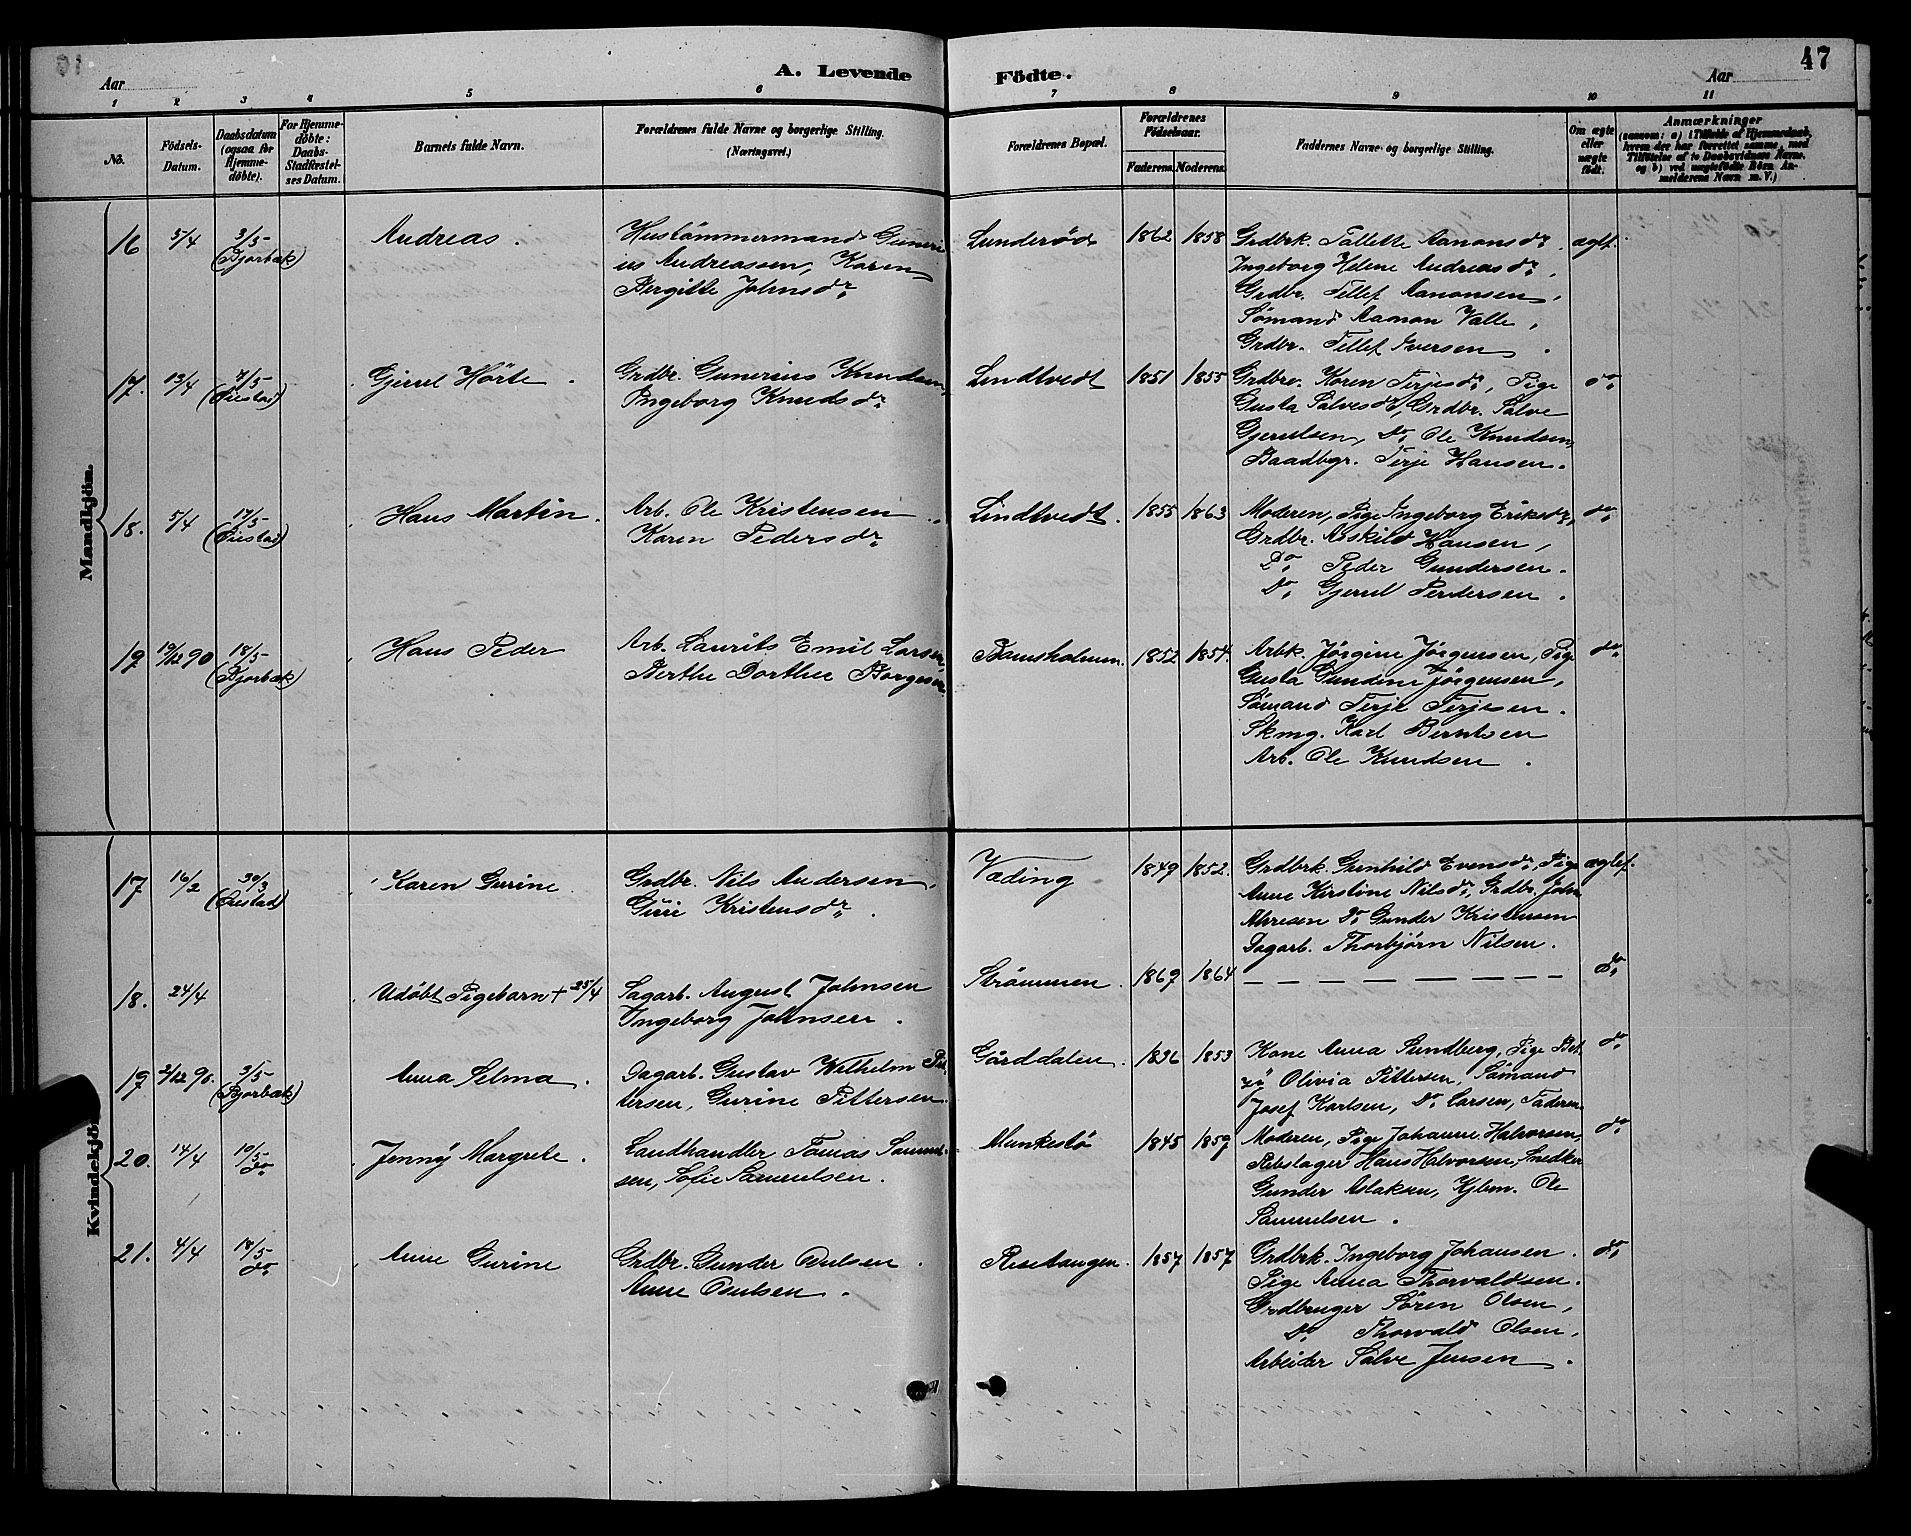 Aar
A. Levende
Födte.
Aar
47
1 2 3 4 5 6 7 8 9 10 11
No.
Födsels-
Datum.
Daabsdatum
(ogsaa for
Hjemme-
döbte).
For Hjemme-
döbte:
Daabs-
Stadfæstel-
ses Datum.
Barnets fulde Navn.
Forældrenes fulde Navne og borgerlige Stilling.
(Næringsvei.)
Forældrenes Bopæl.
Forældrenes
Födselsaar.
Faderens. Moderens.
Faddernes Navne og borgerlige Stilling.
Om ægte
eller
uægte
født.
Anmærkninger
(saasom: a) i Tilfælde af Hjemmedaab,
hvem der har forrettet samme, med
Tilföielse af to Daabsvidners Navne,
og b) ved uægtefödte Börn An-
melderens Navn m. V.)
Mandkjön.
16 5/4 3/5 (Bjorbæk) Andreas. Hustömmermand Guneri
us Andreassen, Karen
Bergitte Johnsdr.
Lunderöd 1862 1858 Grdbrk. Tallette Aanonsdr. ægtf.
Ingeborg Helene Andreasdr.
Grdbr. Tellef Aanonsen,
Sömand Aanon Valle,
Grdbr. Tellef Iversen.
17. 13/4 7/5 (Øiestad) Gjerul Hörte. Grdbr. Gunerius Knudsen,
Ingeborg Knudsdr.
Lindtvedt 1851 1855 Grdbre. Karen Terjesdr, Pige do.
Gusta Salvesdr, Grdbr. Salve
Gjerulsen, Do. Ole Knudsen,
Baadbgr. Terje Hansen.
18. 5/4 17/5 (Øiestad) Hans Martin. Arb. Ole Kristensen
Karen Pedersdr.
Lindtvedt. 1855 1863 Moderen, Pige Ingeborg Eriksdr, do.
Grdbr. Aaskild Hansen,
Do. Peder Gundersen.
Do. Gjerul Pedersen.
19 19/12 90 18/5 (Bjorbæk) Hans Peder Arb. Laurits Emil Larsen,
Berthe Dorthee Borgesen
1852 1854. Arbk. Jörgine Jörgensen, Pige do.
Gusta Gundine Jörgensen,
Sömand Terje Terjesen.
Skmg. Karl Berntsen
Arb. Ole Knudsen.
Kvindekjön.
17 16/2 30/3 (Øiestad) Karen Gurine. Grdbr. Nils Andersen,
Guri Kristensdr.
Væding 1849 1852. Grdbrk. Gunhild Evensdr, Pige ægtef.
Anne Kirstine Nilsdr, Grdbr. John
Do. Gunder Kristensen
Dagarb. Thorbjörn Nilsen.
18. 24/4 Udöbt Pigebarn + 25/4 Sagarb. August Johnsen
Ingeborg Johnsen.
Strömmen. 1869 1864 — — — — — — — — do.
19 2/12 90. 3/5 (Bjorbæk) Anna Selma. Dagarb. Gustav Wilhelm Pit
tersen, Gurine Pittersen.
Gårddalen. 1836 1853 Kone Anna Sundberg, Pige Bet do.
zÿ Olivia Pittersen, Sömand
Josef Karlsen, Do. Larsen, Faderen.
20. 14/4 10/5 do. Jenny Margrete. Landhandler Tomas Samuel-
sen, Sofie Samuelsen.
Munkestö 1845 1859 Moderen, Pige Johanne Halvorsen, do
Rebslager Hans Halvorsen, Snedker
Gunder Aslaksen, Kjbm. Ole
Samuelsen.
21. 4/4 18/5 do. Anne Gurine Grdbr. Gunder Oulsen.
Anne Oulsen.
Risetangen. 1857 1857 Grdbrk. Ingeborg Johansen. do.
Pige Anna Thorvaldsen.
Grdbruger Sören Olsen,
Do. Thorvald Olsen,
Arbeider Salve Jensen.